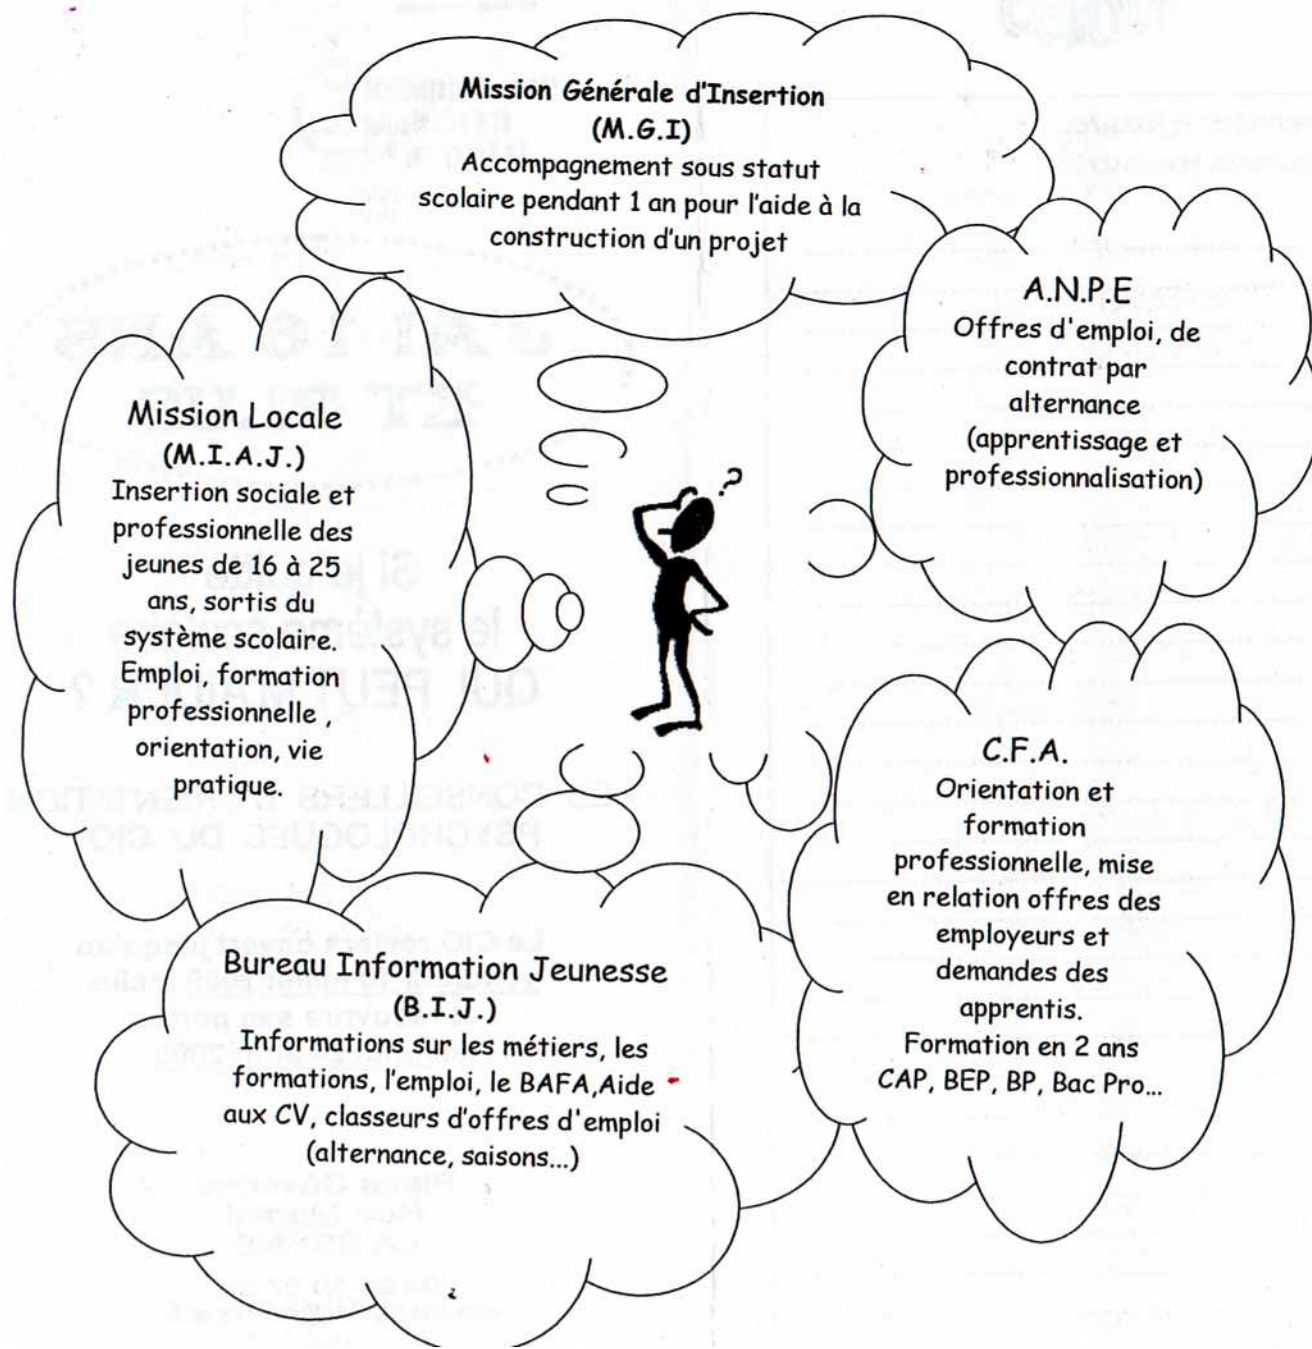 Mission Générale d'Insertion
(M.G.I)
Accompagnement sous statut
scolaire pendant 1 an pour l'aide à la
construction d'un projet
A.N.P.E
Offres d'emploi, de
contrat par
alternance
(apprentissage et
professionnalisation)
Mission Locale
(M.I.A.J.)
Insertion sociale et
professionnelle des
jeunes de 16 à 25
ans, sortis du
système scolaire.
Emploi, formation
professionnelle ,
orientation, vie
pratique.
?
C.F.A.
Orientation et
formation
professionnelle, mise
en relation offres des
employeurs et
demandes des
apprentis.
Formation en 2 ans
CAP, BEP, BP, Bac Pro...
Bureau Information Jeunesse
(B.I.J.)
Informations sur les métiers, les
formations, l'emploi, le BAFA,Aide
aux CV, classeurs d'offres d'emploi
(alternance, saisons...)